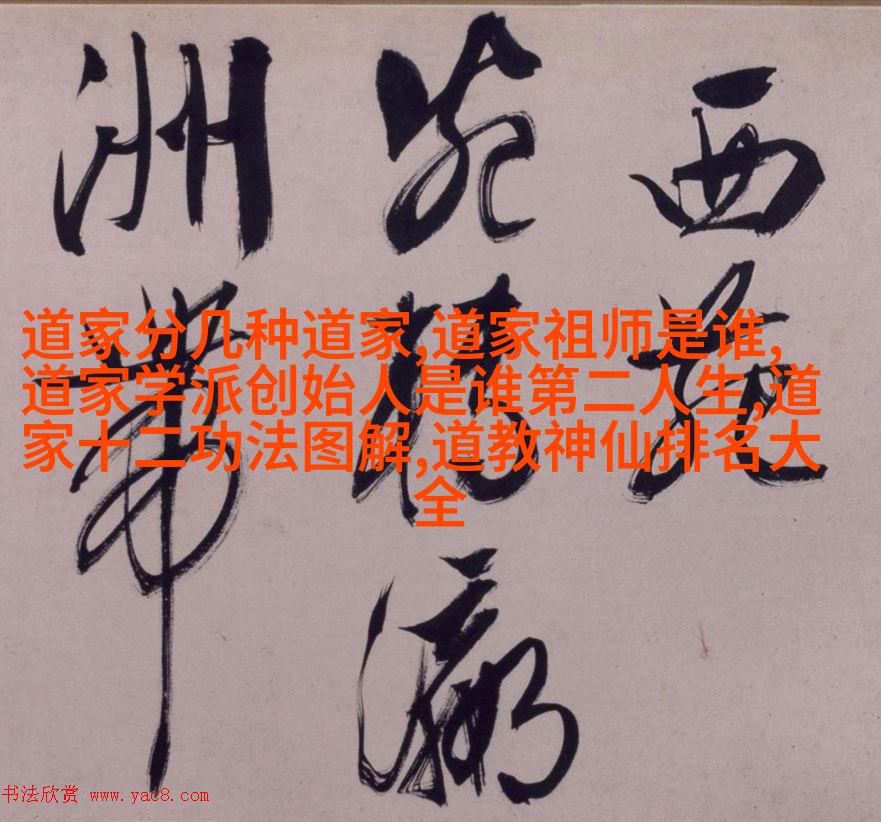 道家分几种道家,道家祖师是谁,
道家学派创始人是谁第二人生,道
家十二功法图解,道教神仙排名大
全
西
瀛
洲帶
书法欣赏 www.yac8.com